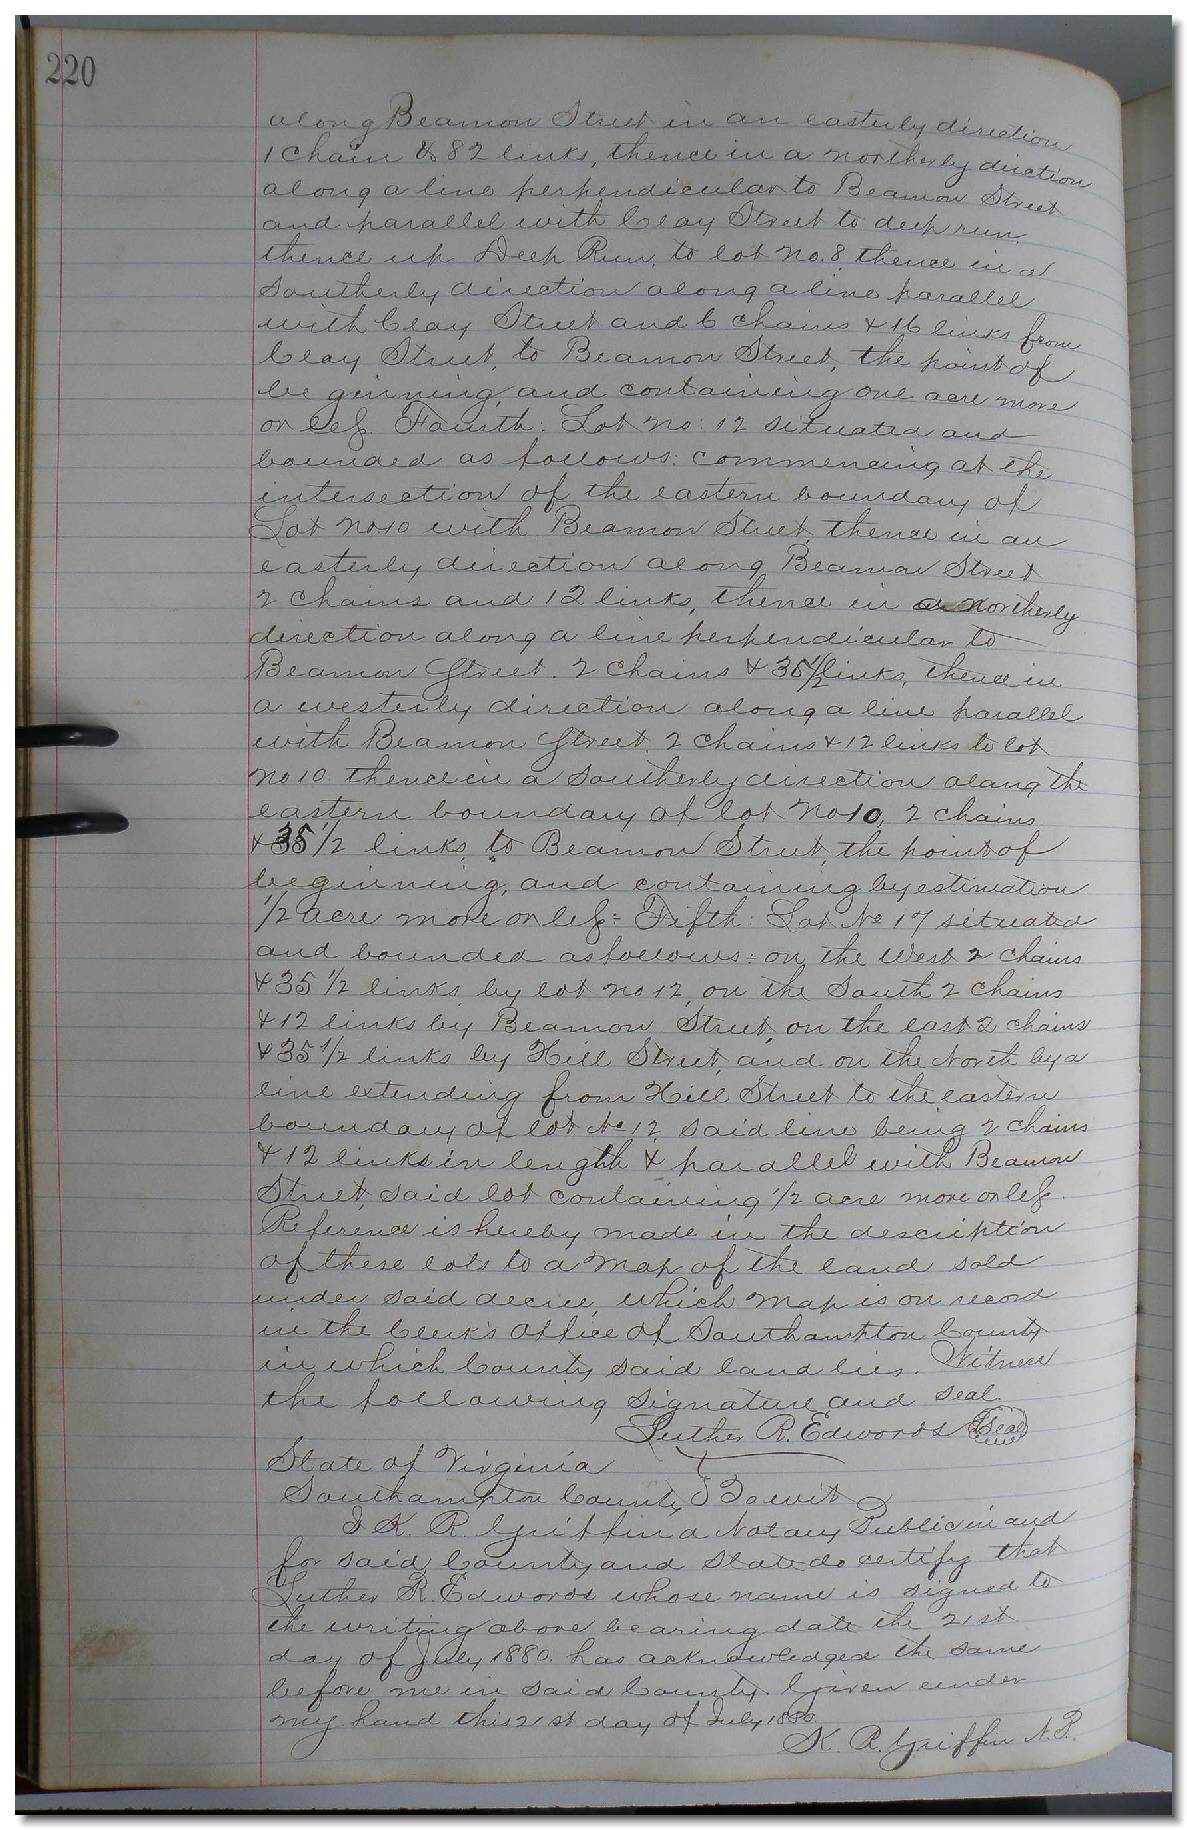 220
along Beamon Street in an easterly direction
1 chain & 82 links, thence in a northerly direction
along a line perpendicular to Beamon Street
and parallel with Clay Street to deep run.
thence up Deep Run, to lot no. 8, thence in a
Southerly direction along a line parallel
with Clay Street and 6 chains & 16 links from
Clay Street, to Beamon Street, the point of
beginning, and containing one acre more
or less Fourth: Lot no: 12 situated and
bounded as follows: commencing at the
intersection of the eastern boundary of
Lot no 10 with Beamon Street, thence in an
easterly direction along Beamon Street
2 chains and 12 links, thence in a northerly
direction along a line perpendicular to
Beamon Street. 2 chains & 35 1/2 links, thence in
a westerly direction along a line parallel
with Beamon Street, 2 chains & 12 links to lot
no 10 thence in a Southerly direction along the
eastern boundary of lot no 10, 2 chains
& 35 1/2 links, to Beamon Street, the point of
beginning, and containing by estimation
1/2 acre more or less = Fifth: Lot No 17 situated
and bounded as follows: on the West 2 chains
& 35 1/2 links by lot no 12, on the South 2 chains
& 12 links by Beamon Street, on the east 2 chains
& 35 1/2 links by Hill Street, and on the North by a
line extending from Hill Street to the eastern
boundary of lot No 12, said line being 2 chains
& 12 links in length & parallel with Beamon
Street, said lot containing 1/2 acre more or less.
Reference is hereby made in the description
of these lots to a map of the land sold
under said decree, which map is on record
in the Clerk's Office of Southampton County
in which County said land lies. Witness
the following signature and seal.
Luther R. Edwards Seal
State of Virginia
Southampton County, } To wit
I K. R. Griffin a Notary Public in and
for said County and State do certify that
Luther R. Edwards whose name is signed to
the writing above bearing date the 21st
day of July 1880. has acknowledged the same
before me in said County. Given under
my hand this 21st day of July 1880.
K. R. Griffin N.P.